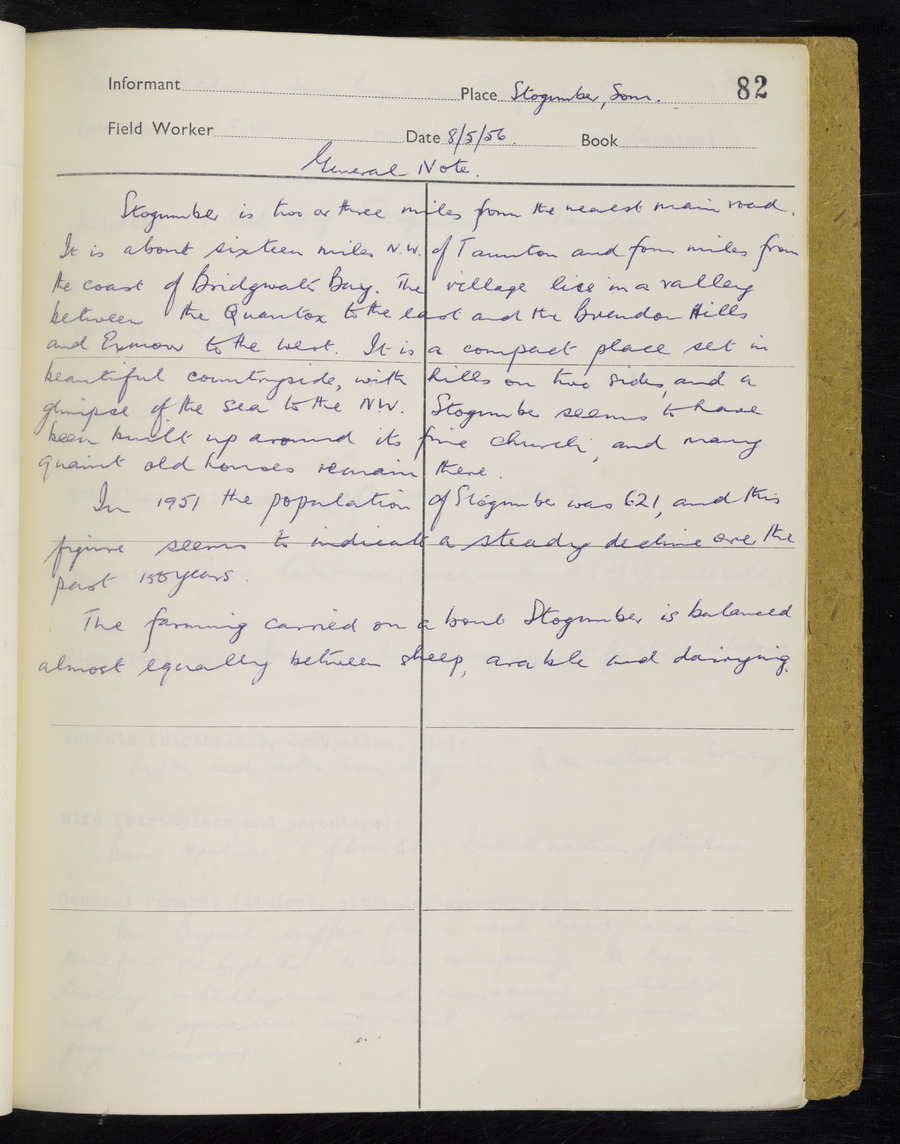 Informant Place Stogumber, Som. 82
Field Worker Date 8/5/56. Book
General Note.
Stogumber is two or three miles from the nearest main road.
It is about sixteen miles N.W. of Taunton and four miles from
the coast of Bridgwater Bay. The village lies in a valley
between the Quantox to the east and the Brendon Hills
and Exmoor to the west. It is a compact place set in
beautiful countryside, with hills on two sides, and a
glimpse of the sea to the NW. Stogumber seems to have
been built up around its fine church, and many
quaint old houses remain there.
In 1951 the population of Stogumber was 621, and this
figure seems to indicate a steady decline over the
past 150 years.
The farming carried on about Stogumber is balanced
almost equally between sheep, arable and dairying.
Parents (birthplace, occupation,
Wife (birthplace and parentage).
General remarks (dialect, attitude,